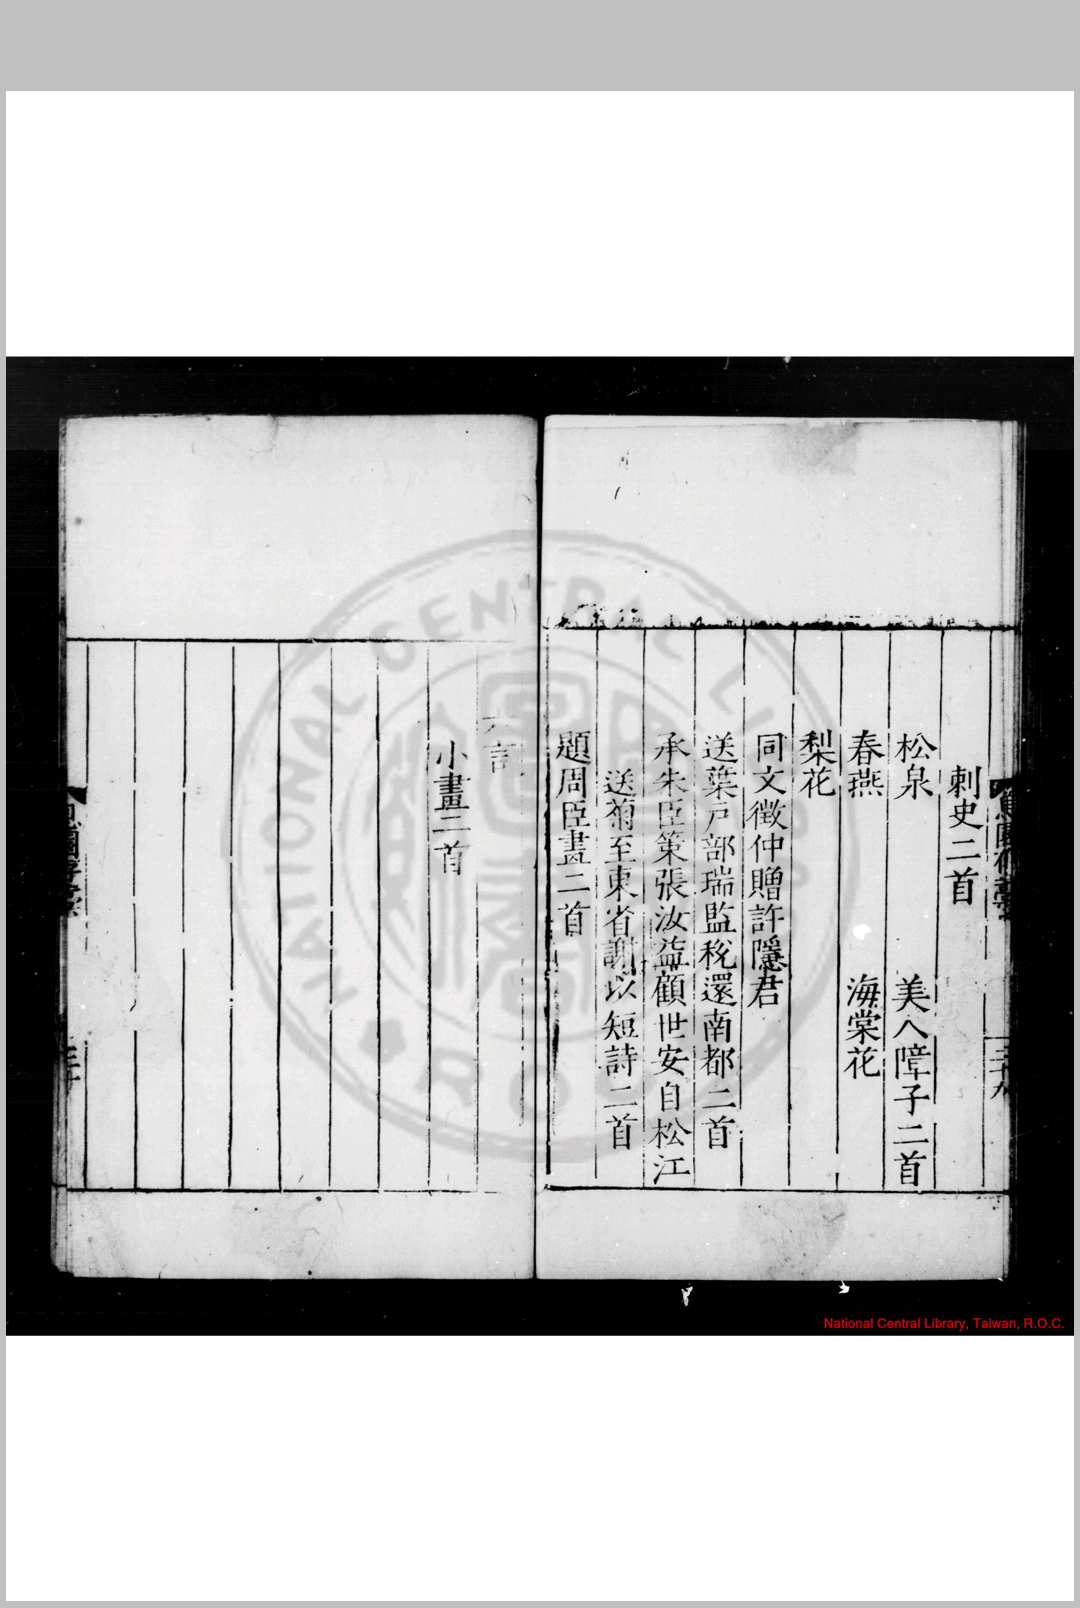 刺史二首
松泉　美人障子二首
春燕　海棠花
梨花
同文徵仲贈許隱君
送葉戶部瑞監稅還南都二首
承朱臣策張汝益顧世安自松江
送菊至東省謝以短詩二首
題周臣畫二首
言
小畫二首
NATIONAL CENTRAL LIBRARY
R.O.C.
National Central Library, Taiwan, R.O.C.